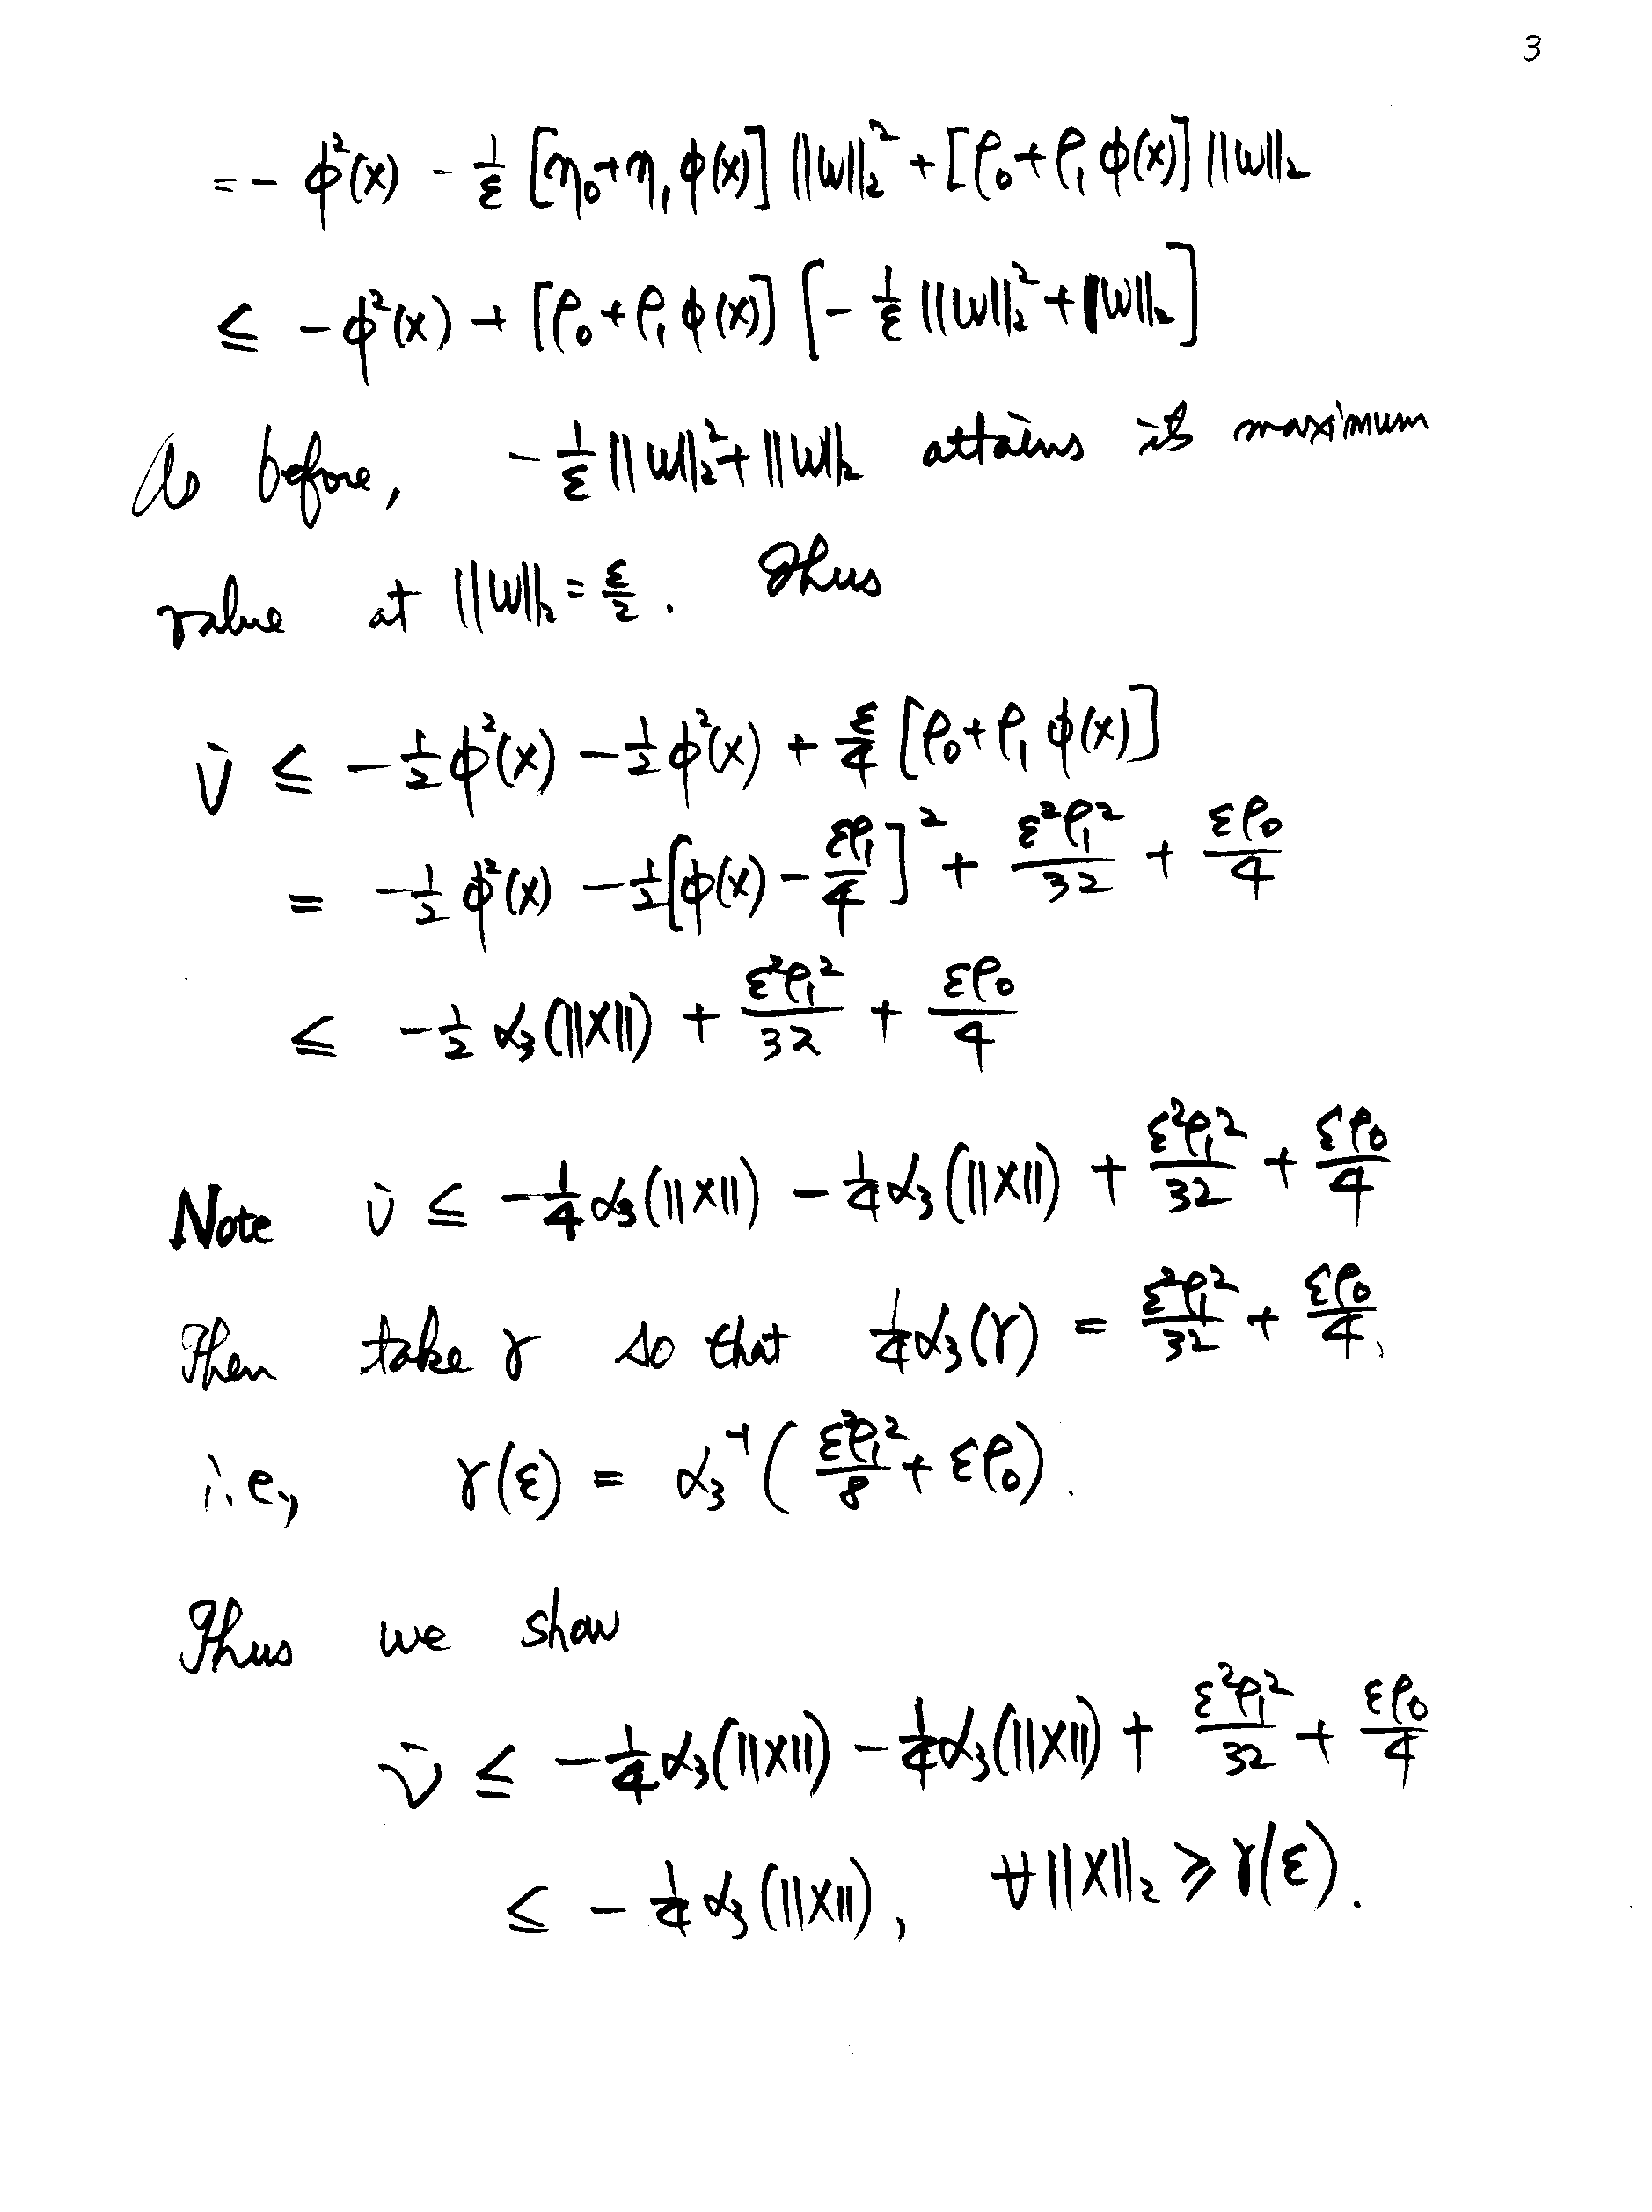 3
= - ϕ²(x) - 1/ε [η₀+η₁ϕ(x)] ||w||₂² + [ρ₀+ρ₁ϕ(x)] ||w||₂
≤ -ϕ²(x) + [ρ₀+ρ₁ϕ(x)] [- 1/ε ||w||₂² + ||w||₂]
As before, - 1/ε ||w||₂² + ||w||₂ attains its maximum
value at ||w||₂ = ε/2. Thus
V̇ ≤ - 1/2 ϕ²(x) - 1/2 ϕ²(x) + ε/4 [ρ₀+ρ₁ϕ(x)]
= - 1/2 ϕ²(x) - 1/2 [ϕ(x) - ερ₁/4]² + ε²ρ₁²/32 + ερ₀/4
≤ - 1/2 α₃(||x||) + ε²ρ₁²/32 + ερ₀/4
Note V̇ ≤ - 1/4 α₃(||x||) - 1/4 α₃(||x||) + ε²ρ₁²/32 + ερ₀/4
Then take r so that 1/4 α₃(r) = ε²ρ₁²/32 + ερ₀/4,
i.e., r(ε) = α₃⁻¹( ε²ρ₁²/8 + ερ₀).
Thus we show
V̇ ≤ - 1/4 α₃(||x||) - 1/4 α₃(||x||) + ε²ρ₁²/32 + ερ₀/4
≤ - 1/4 α₃(||x||), ∀ ||x||₂ ≥ r(ε).